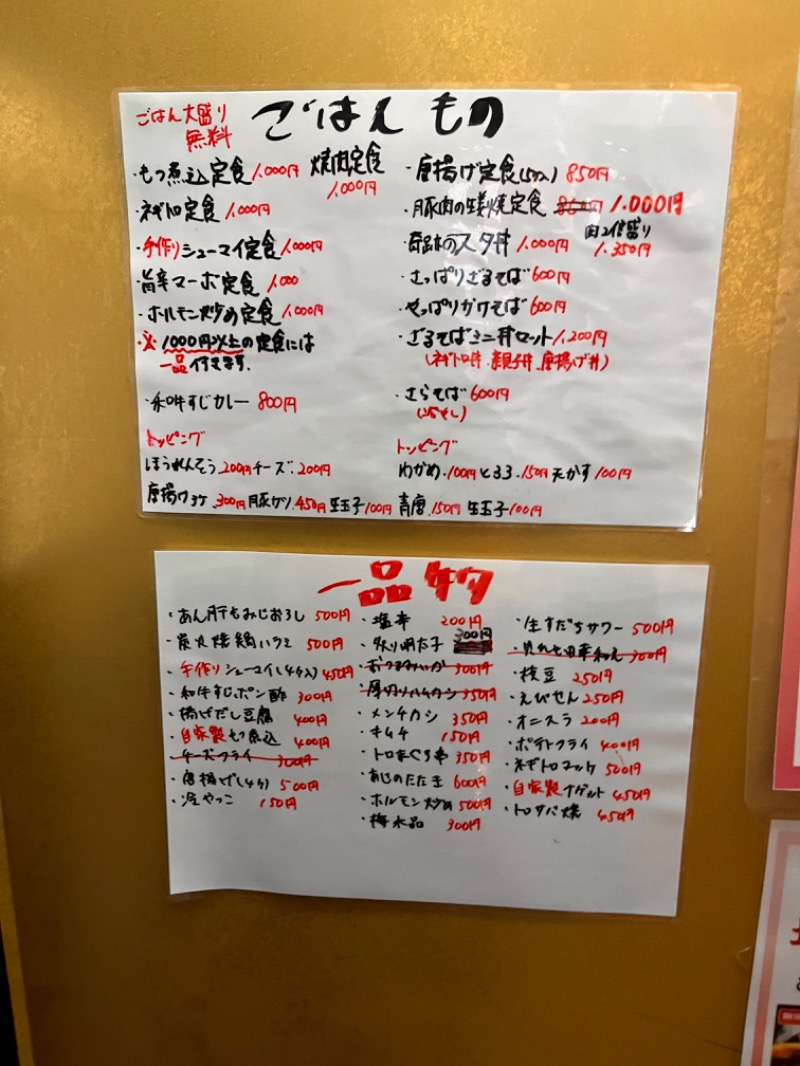 ごはん大盛り
無料
ごはんもの
・もつ煮込定食 1,000円
焼肉定食
1,000円
・ネギトロ定食 1,000円
・手作りシューマイ定食 1,000円
・旨辛マーボ定食 1,000
・ホルモン炒め定食 1,000円
・※1000円以上の定食には
一品付てます.
・和牛すじカレー 800円
トッピング
ほうれんそう 200円 チーズ 200円
唐揚げ3ケ 300円 豚カツ 450円 生玉子 100円
・唐揚げ定食(5ヶ入) 850円
・豚肉の生姜焼定食 1.000円
・のスタ丼 1,000円
肉2倍盛り
1.350円
・さっぱりざるそば 600円
・やっぱりかけそば 600円
・ざるそばミニ丼セット 1,200円
(ネギトロ丼.親子丼.唐揚げ丼)
・さらそば 600円
トッピング
わかめ.100円 とろろ.150円 天かす 100円
青唐.150円 生玉子 100円
一品物
・あん肝もみじおろし 500円
・炭火焼鶏ハラミ 500円
・手作りシューマイ(4ヶ入) 450円
・和牛すじポン酢 300円
・揚げだし豆腐 400円
・自家製もつ煮込 400円
・チーズフライ 300円
・唐揚げ(4ヶ) 500円
・冷やっこ 150円
・塩辛 200円
・炙り明太子 300円
・おつまみいか 300円
・厚切りハムカツ 350円
・メンチカツ 350円
・キムチ 150円
・トロまぐろ串 350円
・あじのたたき 600円
・ホルモン炒め 500円
・梅水晶 300円
・生すだちサワー 500円
300円
・枝豆 250円
・えびせん 250円
・オニスラ 200円
・ポテトフライ 400円
・ネギトロマッケ 500円
・自家製ナゲット 450円
・トロサバ焼 450円